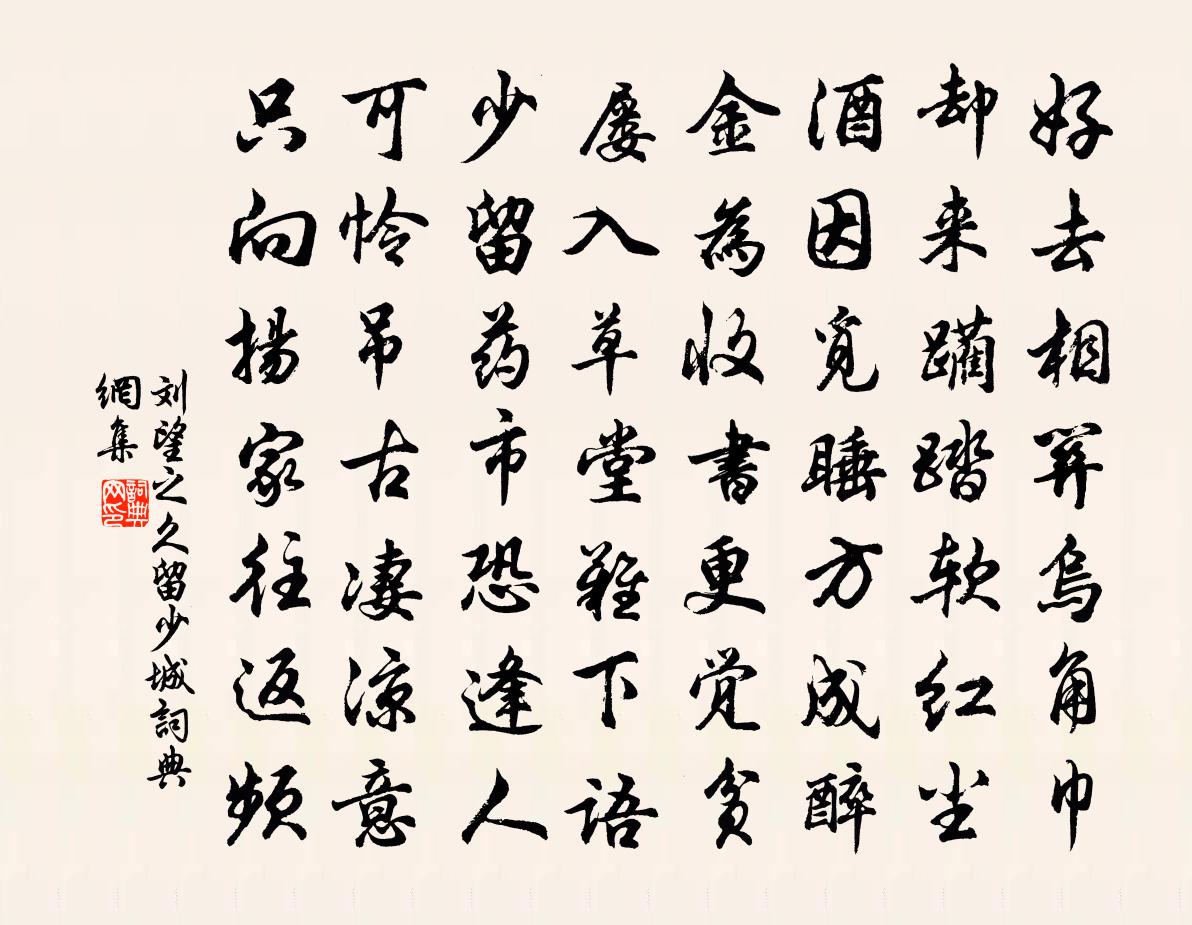 好去相笄烏角巾
却来躏踏软红尘
酒因觅睡方成醉
金為收書更觉贫
屡入草堂難下语
少留药市恐逢人
可怜吊古凄凉意
只向揚家往返频
刘望之久留少城詞典
網集
詞典
网印